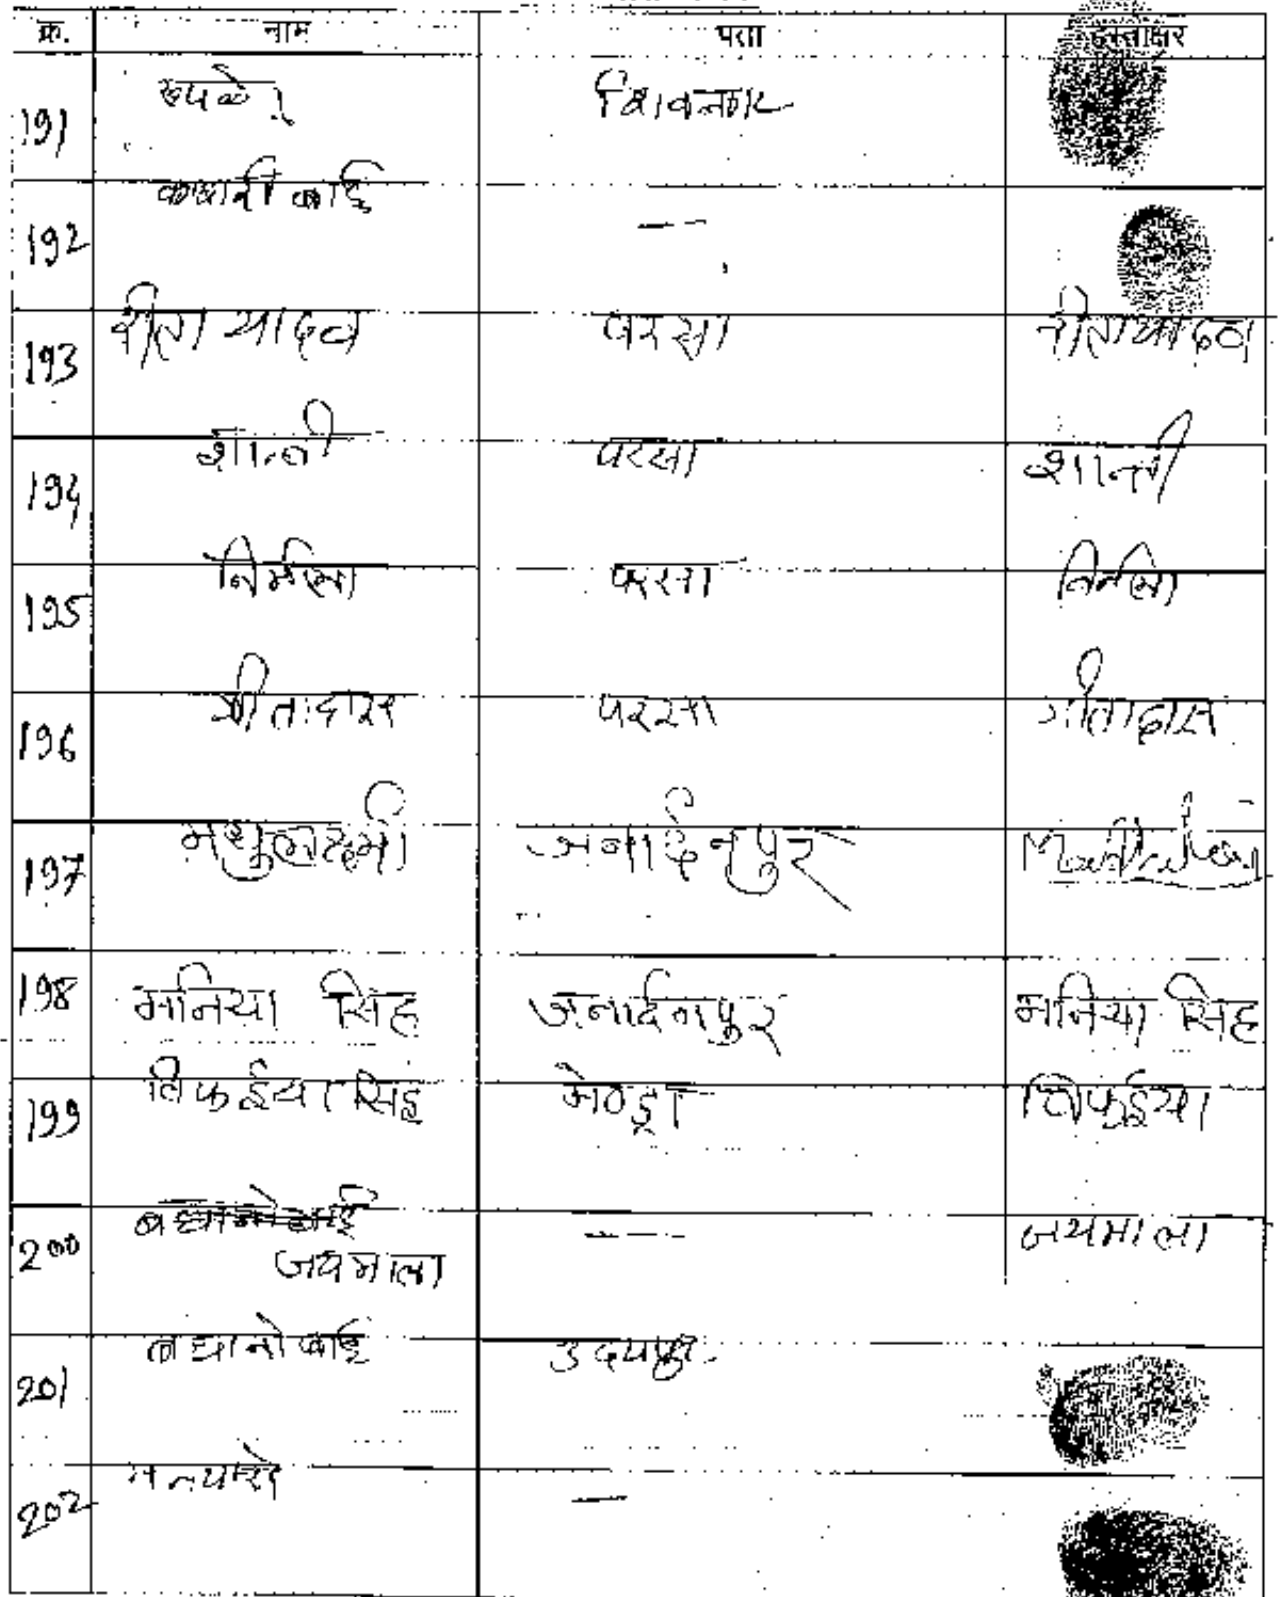 क्र. नाम पता हस्ताक्षर
191 शिवनगर
192 बाई —
193 रीता यादव परसा रीता यादव
194 शान्ती परसा शान्ती
195 निर्मला परसा निर्मला
196 गीता दास परसा गीता दास
197 जनार्दनपुर
198 मनिया सिंह जनार्दनपुर मनिया सिंह
199 तिफईया सिंह मेण्ड्रा तिफईया
200 —
जयमाला जयमाला
201 बाई उदयपुर
202 —